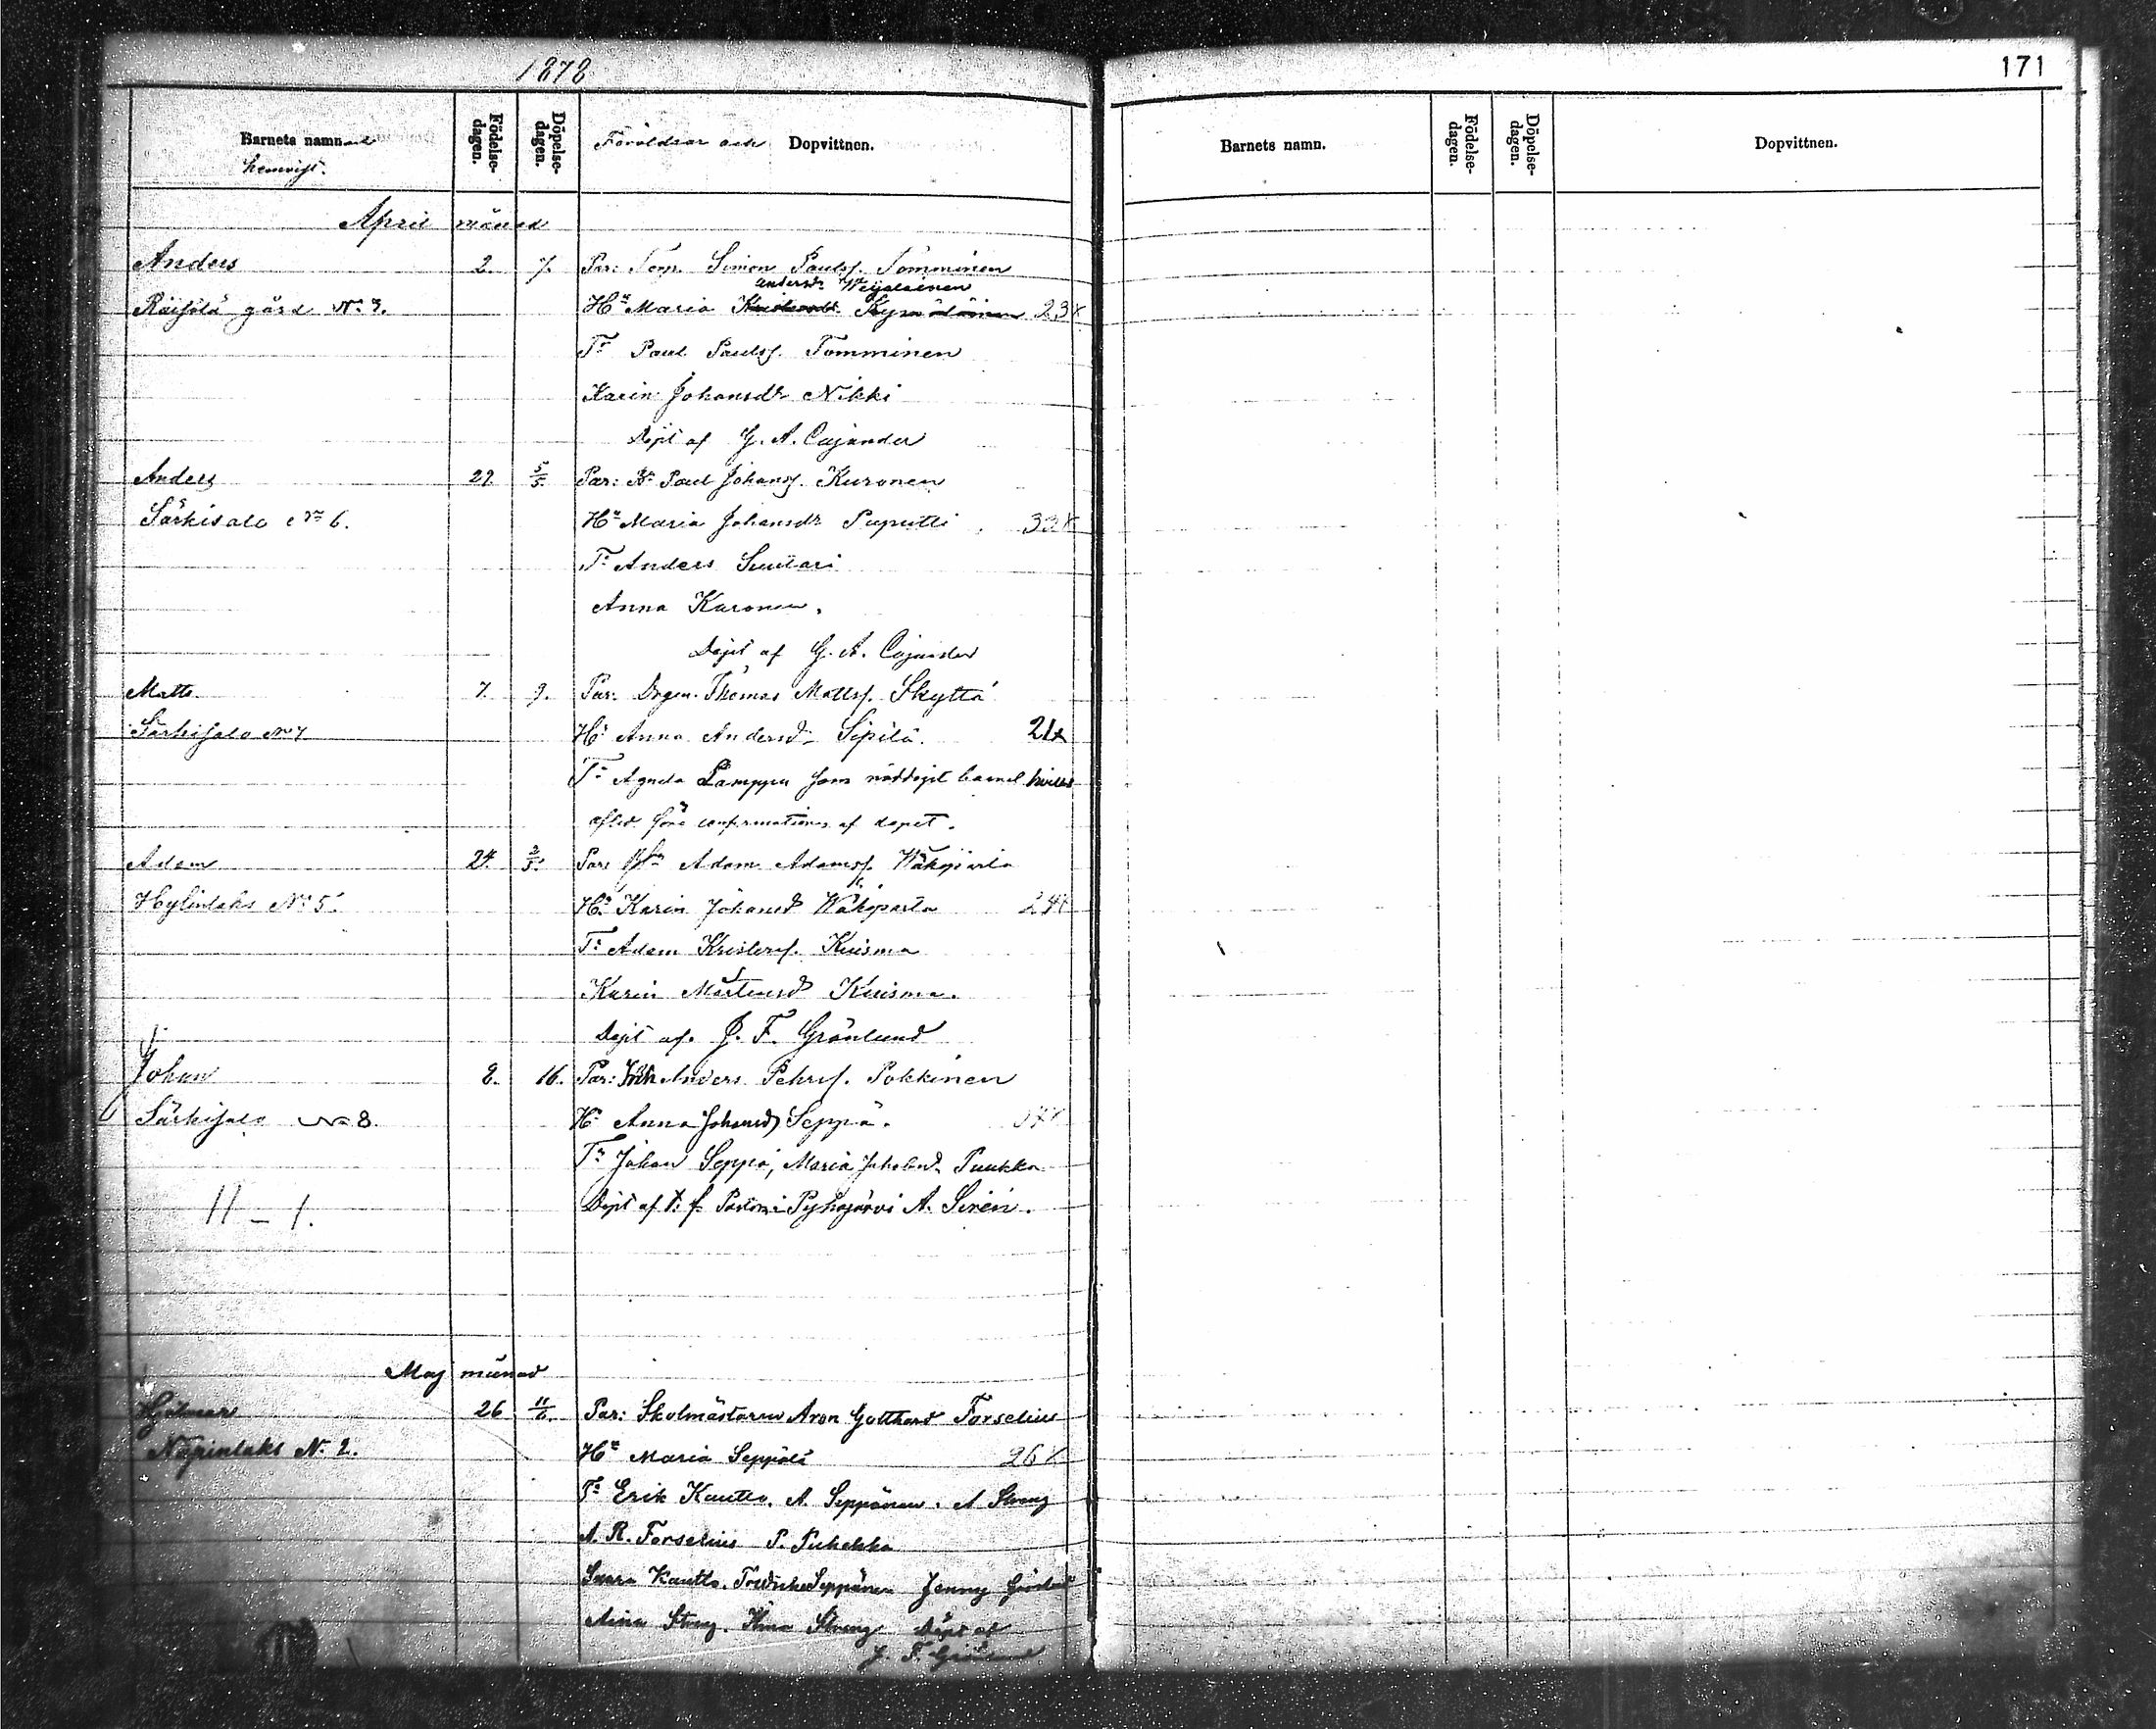 1878
171
Barnets namn och
hemvist.
Födelse-
dagen.
Döpelse-
dagen.
Föräldrar och Dopvittnen.
Barnets namn.
Födelse-
dagen.
Döpelse-
dagen.
Dopvittnen.
April månad
Anders 2. 7. Par: Simon Paulsf. Tomminen
Andersdr Weijalainen
Räisälä gård No 7. Hu Maria 23
Tr Paul Paulsf. Tomminen
Karin Johansdr Nikki
Döpt af G. A. Cajander
Anders 29. 5/5. Par: Paul Johansf. Kuronen
Särkisalo No 6. Hu Maria Johansdr Puputti 33
Tr Anders Suutari
Anna Kuronen.
Döpt af G. A. Cajander
Matts 7. 9. Par: Drgen. Thomas Mattsf. Skyttä
Särkisalo No 7 Hu Anna Andersdr Sipilä. 21
Tr Agneta Lamppu som nöddöpt barnet hvilket
afled före confirmationen af dopet.
Adam 24. 3/5. Par: Adam Adamsf. Wäkiparta
Hytinlaks No 5. Hu Karin Johansd Wäkiparta 24
Tr Adam Kristersf. Kuisma
Karin Mårtensd Kuisma.
Döpt af. J. F. Grönlund
Johan 8. 16. Par: Anders Pehrsf. Pokkinen
Särkisalo No 8. Hu Anna Johansd Seppä.
Tr Johan Seppä, Maria Jakobsd. Puukka
Döpt af t. f. Pastorn i Pyhäjärvi A. Sirén.
11 – 1.
Maj månad
Hjalmar 26 11/6. Par: Skolmästaren Aron Gotthard Forselius
Näpinlaks No 2. Hu Maria Seppälä 26
Tr Erik Kautto, A. Seppänen. A Streng
A. R. Forselius P. Pukakka
Kautto. Seppänen Jenny
Aina Streng. Streng Döpt af
J. F. Grönlund